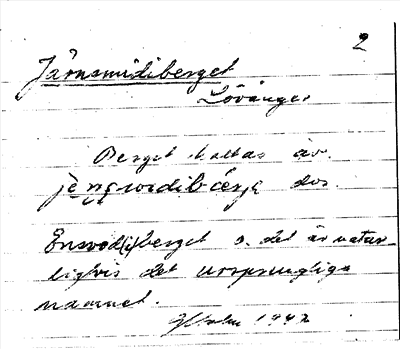 2
Järnsmidiberget
Lövånger
Berget kallas äv.
dvs.
berget o. det är natur-
ligtvis det ursprungliga
namnet.
1942